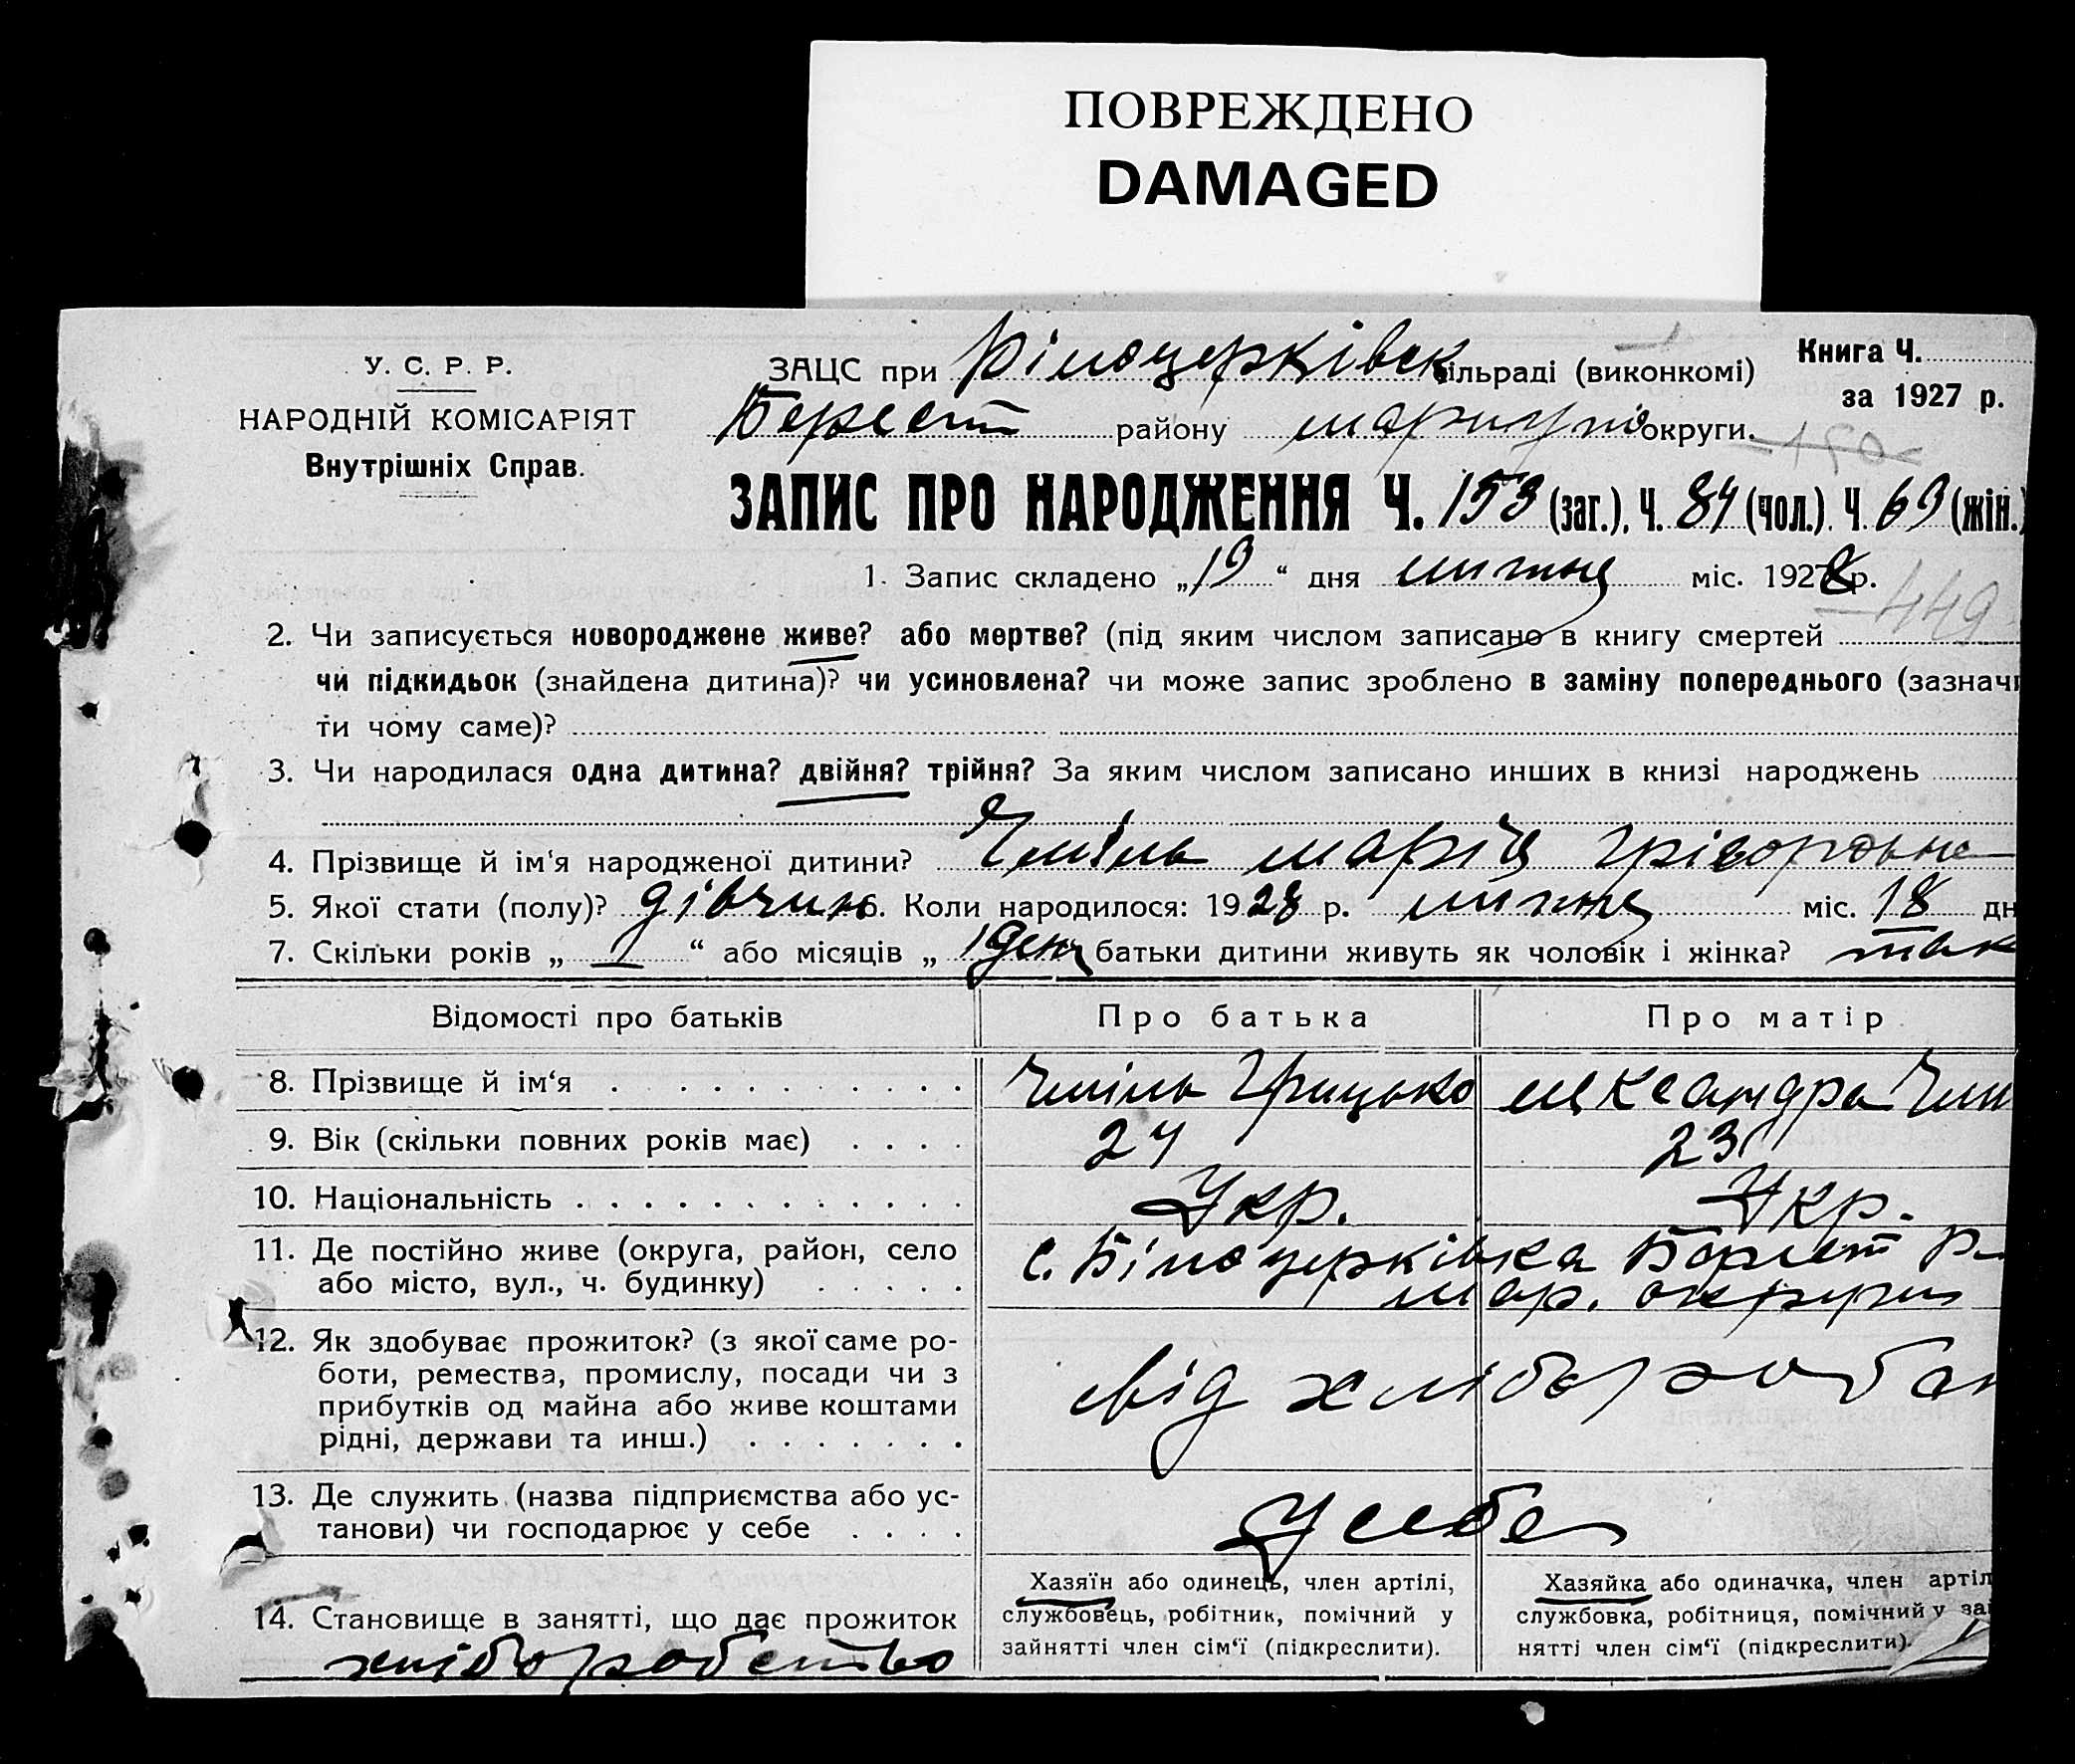 ПОВРЕЖДЕНО
DAMAGED
У. С. Р. Р.
НАРОДНІЙ КОМІСАРІЯТ
Внутрішніх Справ.
ЗАЦС при Білоцерківск сільраді (виконкомі)
Книга Ч.
за 1927 р.
Берест району маріуп округи.
150
ЗАПИС ПРО НАРОДЖЕННЯ Ч. 153 (заг.), Ч. 84 (чол.). Ч. 69 (жін.)
1. Запис складено „19“ дня липня міс. 1928 р.
449
2. Чи записується новороджене живе? або мертве? (під яким числом записано в книгу смертей
чи підкидьок (знайдена дитина)? чи усиновлена? чи може запис зроблено в заміну попереднього (зазначи
ти чому саме)?
3. Чи народилася одна дитина? двійня? трійня? За яким числом записано инших в книзі народжень
4. Прізвище й ім‘я народженої дитини? Чміль марія грігоровна
5. Якої стати (полу)? дівчин 6. Коли народилося: 1928 р. липня міс. 18 дн
7. Скільки років „ — “ або місяців „ 1 день батьки дитини живуть як чоловік і жінка? так
Відомості про батьків Про батька Про матір
8. Прізвище й ім‘я Чміль Грицько Чми
9. Вік (скільки повних років має) 24 23
10. Національність Укр. Укр.
11. Де постійно живе (округа, район, село с. Білоцерківка Берест р.
або місто, вул., ч. будинку) мар. округи
12. Як здобуває прожиток? (з якої саме ро-
боти, ремества, промислу, посади чи з від хліборобан
прибутків од майна або живе коштами
рідні, держави та инш.)
13. Де служить (назва підприємства або ус-
танови) чи господарює у себе У себе
14. Становище в занятті, що дає прожиток
хліборобство
Хазяїн або одинець, член артілі,
службовець, робітник, помічний у
зайнятті член сім‘ї (підкреслити).
Хазяйка або одиначка, член артіл
службовка, робітниця, помічний у зай
нятті член сім‘ї (підкреслити).